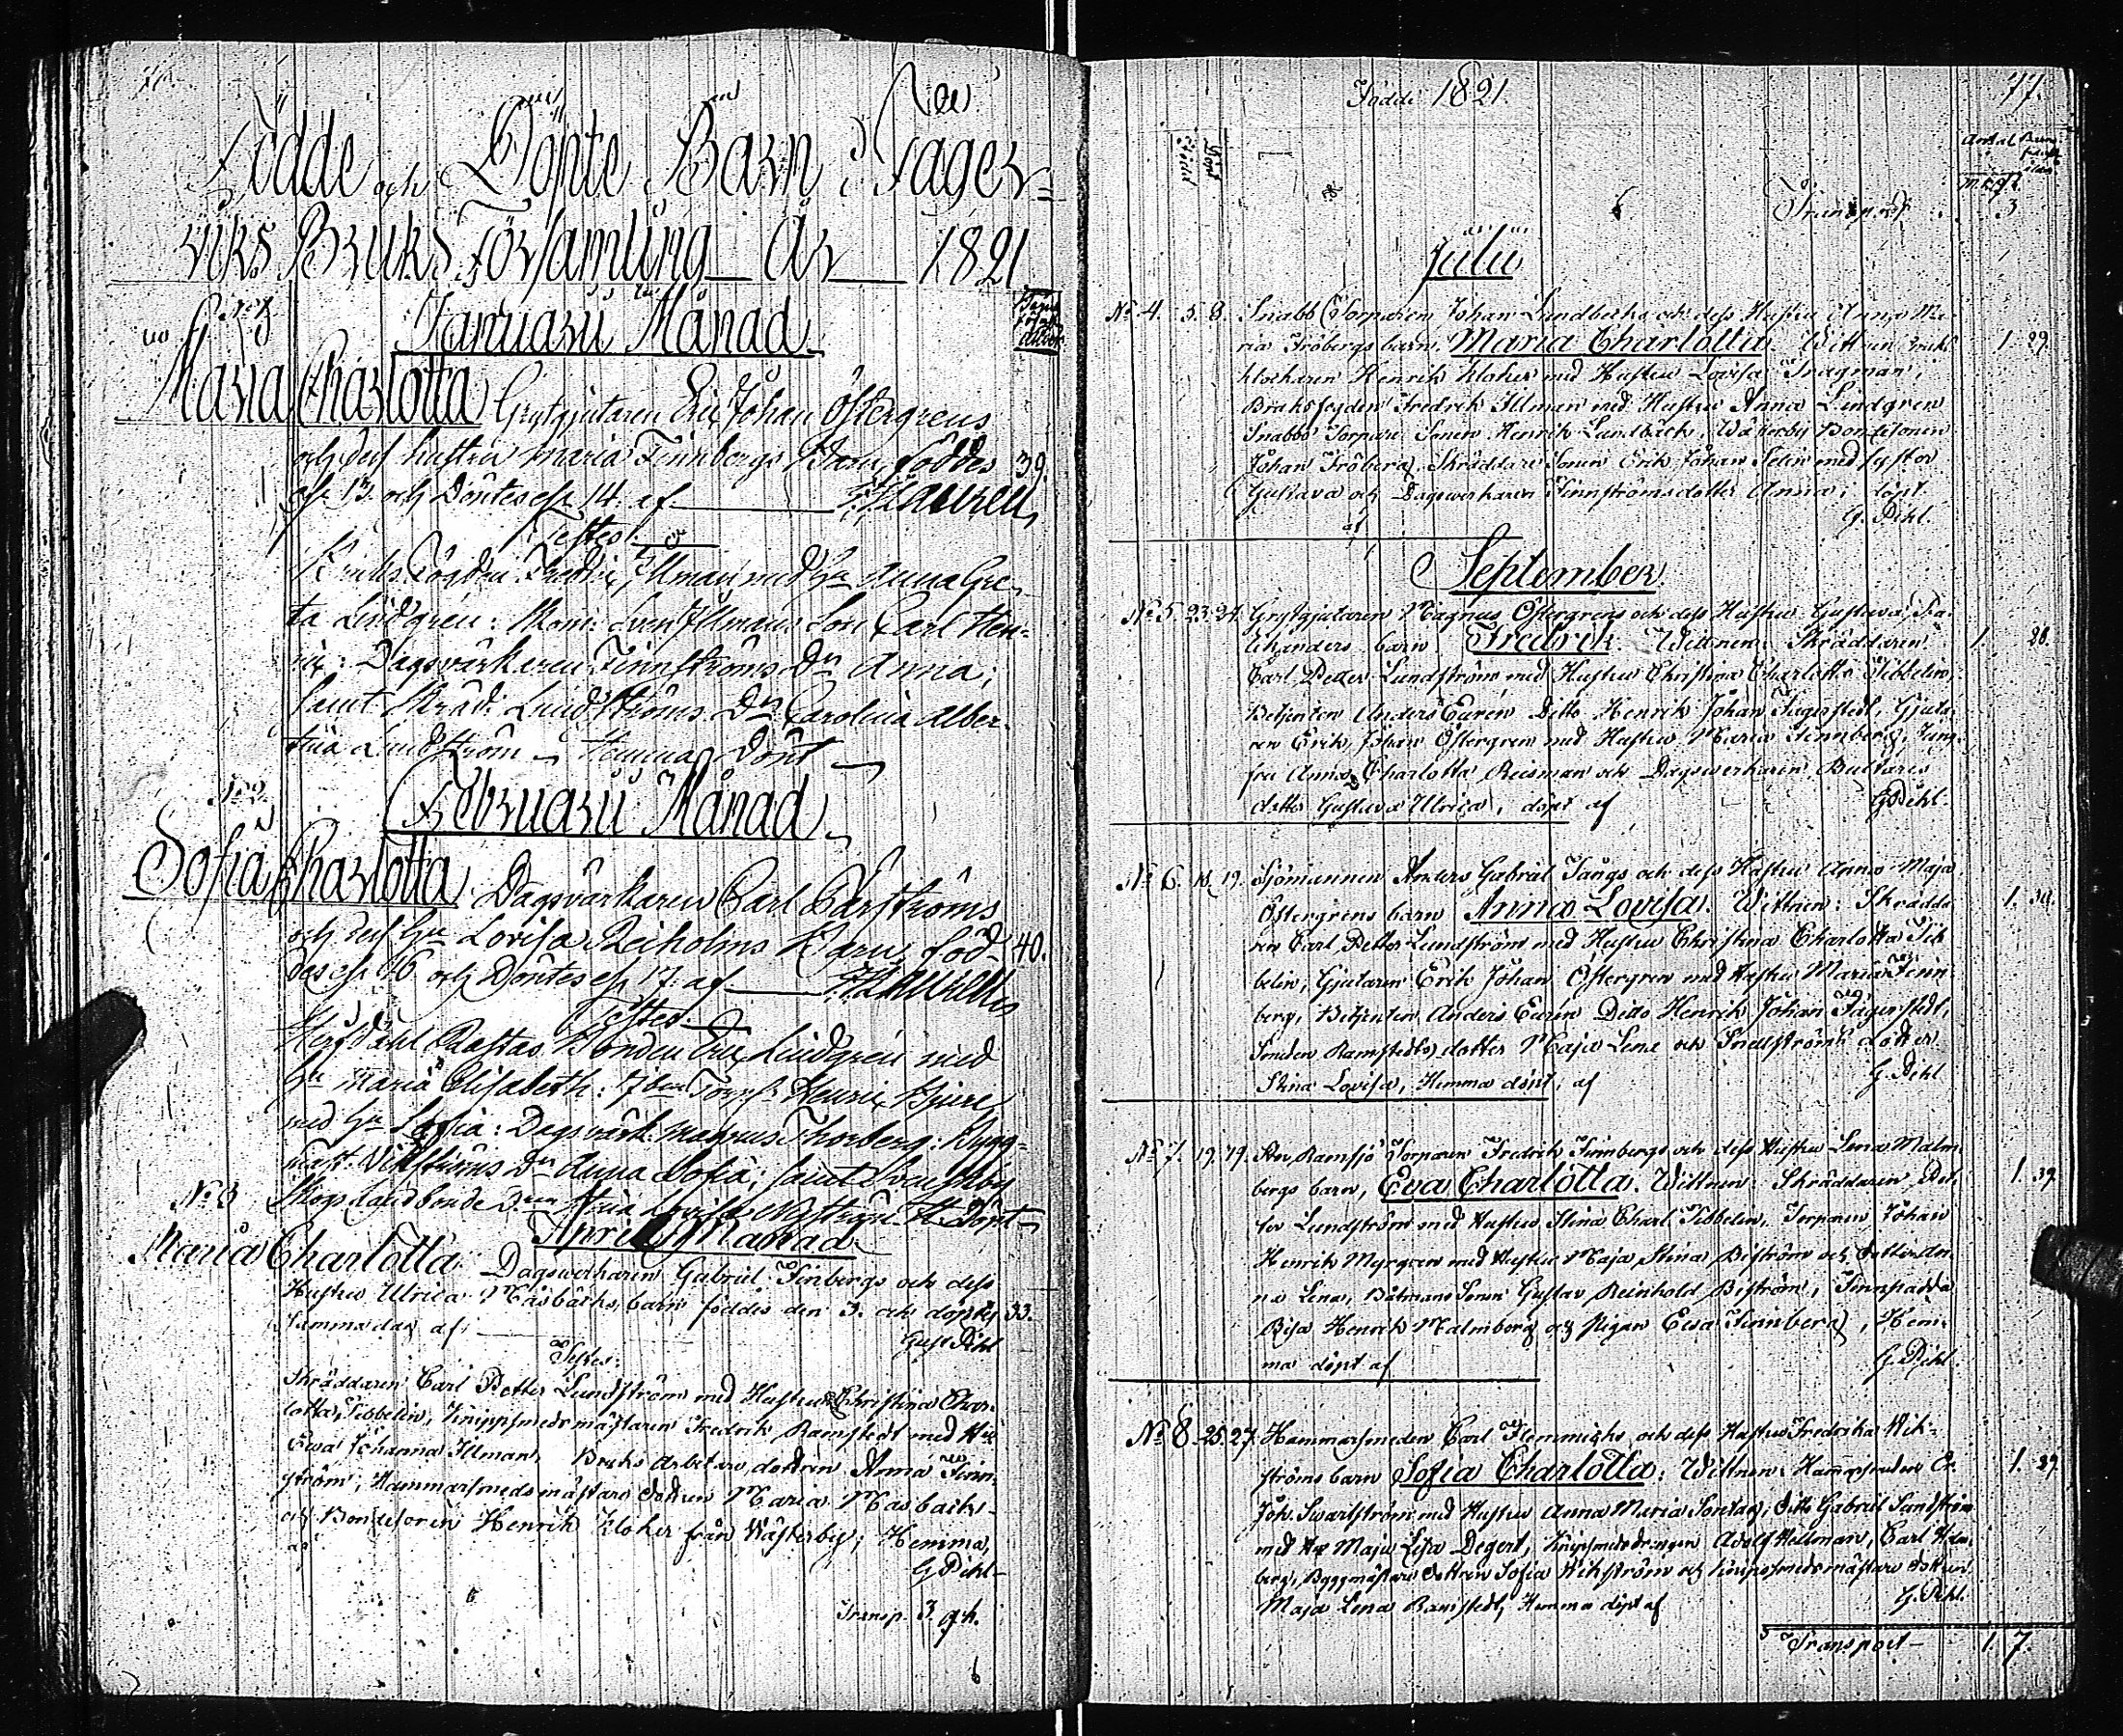 Födde och Döpte Barn i Fager=
viks Bruks Församling År 1821
Januarii Månad
Maria Charlotta Grytgjutaren Eric Johan Östergrens
och dess hustru Maria Finnbergs Barn, föddes 39.
13 och Döptes 14. af
Testes:
Bruks Fogden Fredric Illman med Anna Gre-
ta Lindgren: Illmans Son Carl Hen-
ric: Dagsvärkaren Finnströms Dr Anna;
samt Skräd: Lundströms Dr Carolina Alber-
tina Lundström Hemma Döpt
No 2
Februarii Månad
Sofia Charlotta Dagsvärkaren Carl
och dess Lovisa Reiholms Barn, föd- 40.
des 16 och Döptes 17. af
Testes
Bonden Eric Lindgren med
Maria Elisabeth: Henric
med Sofia: Dagsvärk: Magnus Thorberg: Bygg-
mäst. Wikströms Dr Anna Sofia; samt
No 3
April Månad
Maria Charlotta Dagswerkaren Gabriel Finbergs och dess
Hustru Ulrica Måsbacks barn föddes den 3. och döptes 33.
samma dag af
Gust Pihl
Testes:
Skräddaren Carl Petter Lundström med Hustru Christina Char-
lotta Tibbelin, Knippsmeds mästaren Fredrik Ramstedt med
Ewa Johanna Illman, Bruks Arbetare dottren Anna Finn-
ström, Hammarsmeds mästare dottren Maria Masback
och Bondesonen Henrik Kloker från Wästerby; Hemma,
af G Pihl
Transp. 3
Födde 1821. 77.
Född Döpt
Antal
Transport 3
Julii
No 4. 5. 8. Snabb Torparen Johan Lundbecks och dess Hustru Anna Ma-
ria Fröbergs barn. Maria Charlotta. Wittnen: Bruks 1. 29.
klockaren Henrik Kloker med Hustru Lovisa Tragman,
Bruksfogden Fredrik Illman med Hustru Anna Lindgren
Snabbs Torpare Sonen Henrik Lundbäck, Wästerby Bondesonen
Johan Fröberg, Skräddare Sonen Erik Johan Selin med syster
Gustava och Dagswerkaren Finnströms dotter Anna; döpt
af G. Pihl.
September
No 5. 23. 24. Grytgjutaren Magnus Östergrens och dess Hustru Gustava
barn. Fredrik. Wittnen: Skräddaren 1. 28.
Carl Petter Lundström med Hustru Christina Charlotta Tibbelin,
Betjenten Anders Euren Ditto Henrik Johan Fagerstedt, Gjuta-
ren Erik Johan Östergren med Hustru Maria Finnberg, Jung-
fru Anna Charlotta Reisman och Dagswerkaren
dotter Gustava Ulrica, döpt af G Pihl.
No 6. 18. 19. Sjömannen Anders Gabriel Tångs och dess Hustru Anna Maja
Östergrens barn Anna Lovisa. Wittnen: Skrädda- 1. 30.
ren Carl Petter Lundström med Hustru Christina Charlotta Tib
belin, Gjutaren Erik Johan Östergren med Hustru Maria Finn
berg, Betjenten Anders Euren Ditto Henrik Johan Fagerstedt,
Smeden Ramstedts dotter Maja Lena och Snellströms dotter
Stina Lovisa, Hemma döpt, af G. Pihl
No 7. 19. 19. Ramsjö Torparen Fredrik Finnbergs och dess Hustru Lena Malm
bergs barn, Eva Charlotta. Wittnen: Skräddaren Pet 1. 39.
ter Lundström med Hustru Stina Charl. Tibbelin, Torparen Johan
Henrik Myrgren med Hustru Maja Stina Biström och
na Lena, Båtmans Sonen Gustav Reinhold Biström,
Henrik Malmberg och Pigan Eva Finnberg, Hem-
ma döpt af G. Pihl.
No 8. 25. 27. Hammarsmeden Carl Flemmichs och dess Hustru Fredrika Wik-
ströms barn Sofia Charlotta. Wittnen: Hammarsmeden 1. 29
Joh. Swartström med Hustru Anna Maria Sontag, Ditto Gabriel Sandström
med Maja Lisa Degert, Knipsmedsdrängen Adolf Hellman, Carl
berg, Byggmästare dottren Sofia Wikström och Knipsmeds mästare dottren
Maja Lena Ramstedt, Hemma döpt af G. Pihl.
Transport 1. 7.